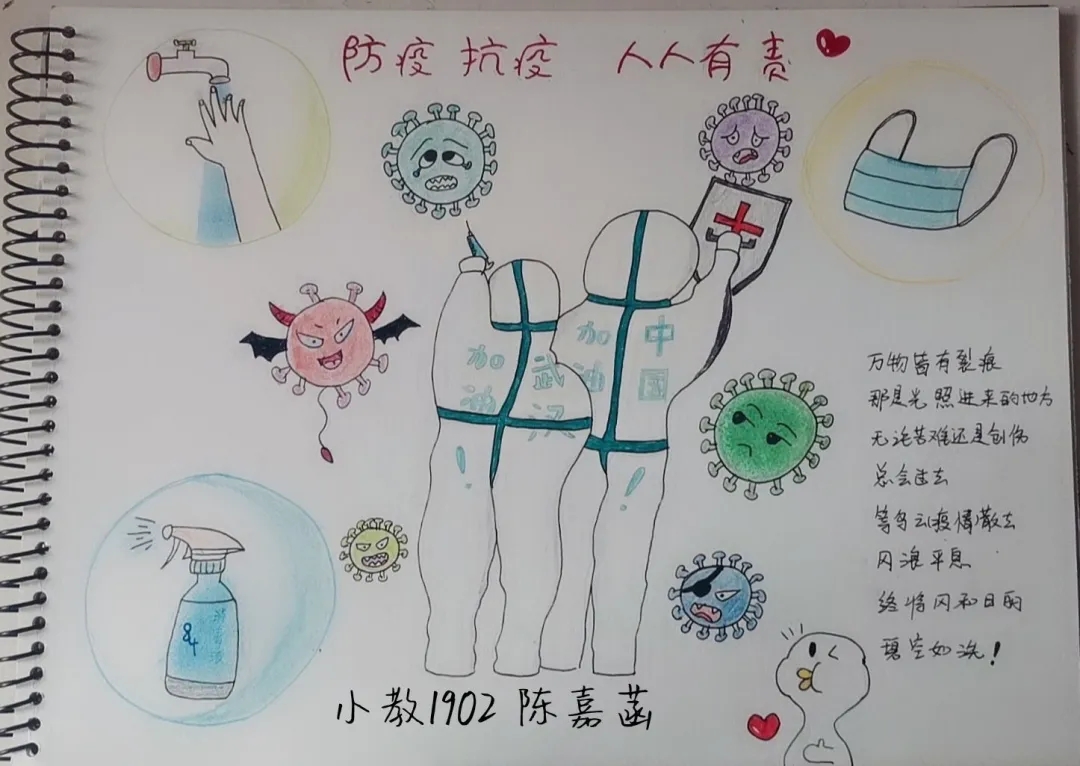 防疫 抗疫 人人有责
加油
武汉
!
加油
中国
!
84
消毒液
万物皆有裂痕
那是光照进来的地方
无论苦难还是创伤
总会过去
等乌云疫情散去
风浪平息
终将风和日丽
碧空如洗！
小教1902 陈嘉菡